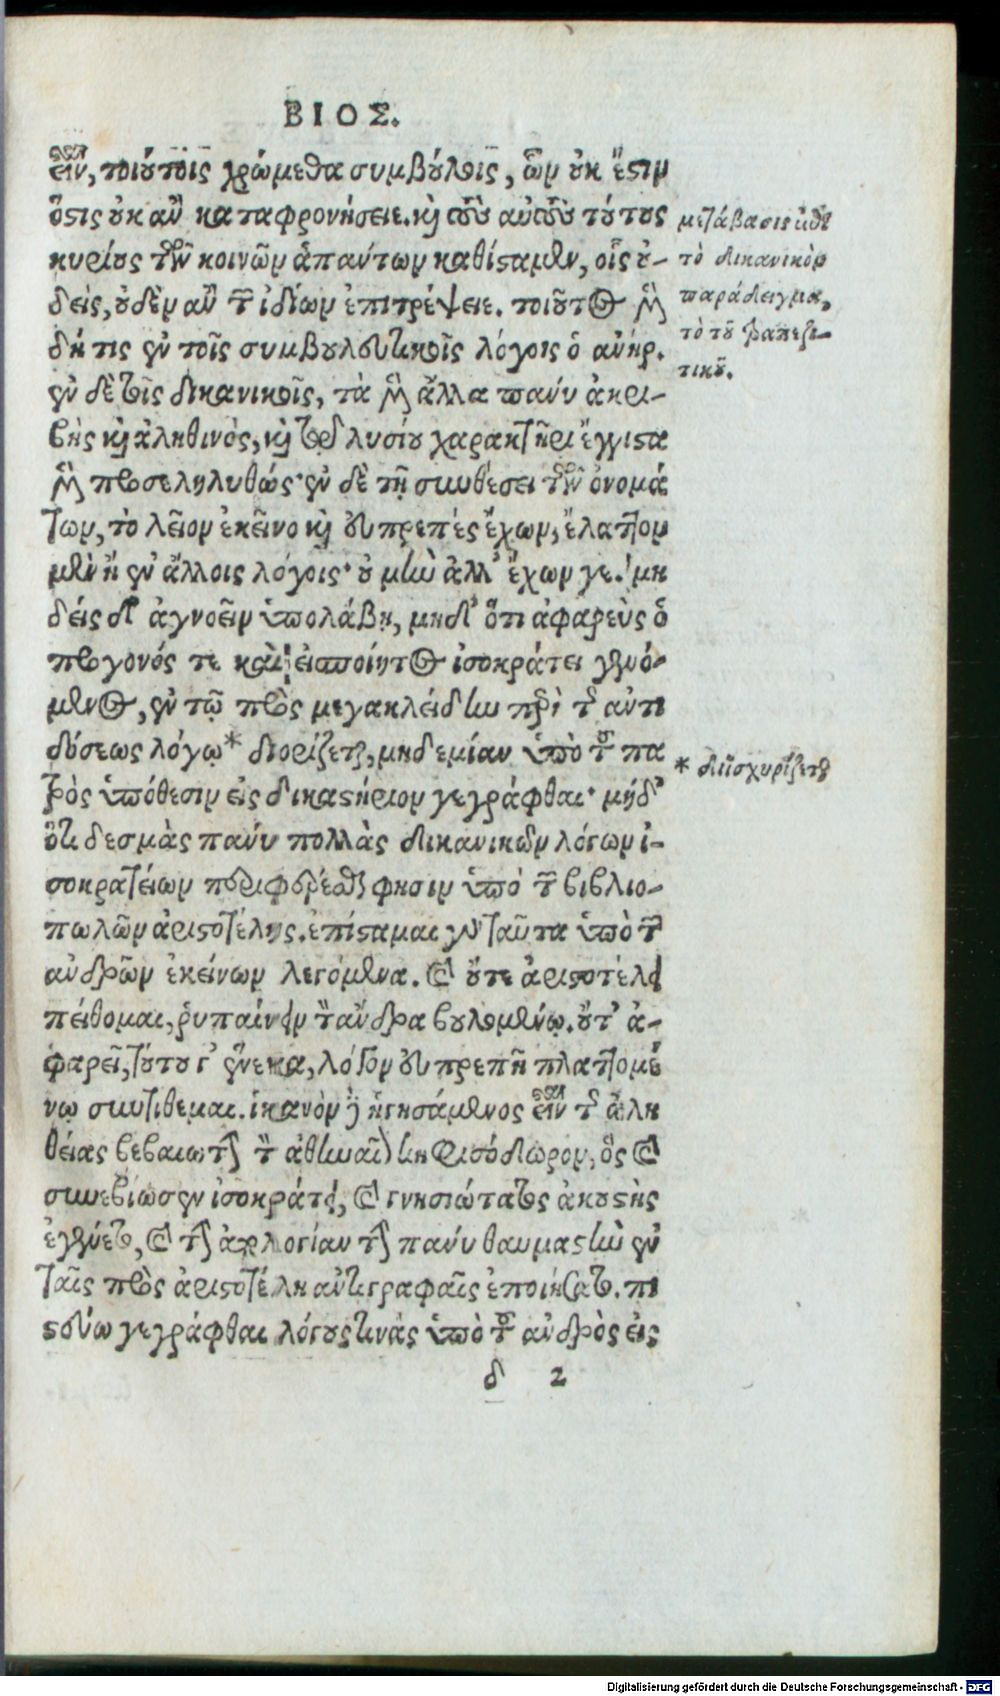 ΒΙΟΣ.
εἶν, τοιούτοις χρώμεθα συμβούλοις, ὧν οὐκ ἔστιν
ὅστις οὐκ ἂν καταφρονήσειε. καὶ τοὺς αὐτοὺς τούτους
κυρίους τῶν κοινῶν ἁπάντων καθίσταμεν, οἷς οὐ-
δεὶς, οὐδὲν ἂν τῶν ἰδίων ἐπιτρέψειε. τοιοῦτος μὲν
δή τις ἐν τοῖς συμβουλευτικοῖς λόγοις ὁ ἀνήρ.
ἐν δὲ τοῖς δικανικοῖς, τὰ μὲν ἄλλα πάνυ ἀκρι-
βὴς καὶ ἀληθινὸς, καὶ τῷ λυσίου χαρακτῆρι ἔγγιστα
μὲν προσεληλυθώς· ἐν δὲ τῇ συνθέσει τῶν ὀνομά
των, τὸ λεῖον ἐκεῖνο καὶ εὐπρεπὲς ἔχων, ἔλαττον
μὲν ἢ ἐν ἄλλοις λόγοις· οὐ μὴν ἀλλ' ἔχων γε. μη
δείς δ' ἀγνοεῖν ὑπολάβῃ, μηδ' ὅτι ἀφαρεὺς ὁ
πρόγονός τε καὶ εἰσποίητος ἰσοκράτει γενό-
μενος, ἐν τῷ πρὸς μεγακλείδην περὶ τῆς ἀντι
δόσεως λόγῳ* διορίζεται, μηδεμίαν ὑπὸ τοῦ πα
τρὸς ὑπόθεσιν εἰς δικαστήριον γεγράφθαι· μήδ'
ὅτι δεσμὰς πάνυ πολλὰς δικανικῶν λόγων ἰ-
σοκρατείων περιφέρεσθαί φησιν ὑπὸ τῶν βιβλιο-
πωλῶν ἀριστοτέλης. ἐπίσταμαι γὰρ ταῦτα ὑπὸ τῶν
ἀνδρῶν ἐκείνων λεγόμενα. καὶ οὔτε ἀριστοτέλει
πείθομαι, ῥυπαίνειν τὸν ἄνδρα βουλομένῳ. οὔτ' ἀ-
φαρεῖ, τούτου γ' ἕνεκα, λόγον εὐπρεπῆ πλαττομέ
νῳ συντίθεμαι. ἱκανὸν δὲ ἡγησάμενος εἶναι τῆς ἀλη
θείας βεβαιωτὴν τὸν ἀθηναῖον κηφισόδωρον, ὃς καὶ
συνεβίωσεν ἰσοκράτει, καὶ γνησιώτατος ἀκουστὴς
ἐγένετο, καὶ τὴν ἀπολογίαν τὴν πάνυ θαυμαστὴν ἐν
ταῖς πρὸς ἀριστοτέλη ἀντιγραφαῖς ἐποιήσατο. πι
στεύω γεγράφθαι λόγους τινὰς ὑπὸ τοῦ ἀνδρὸς εἰς
δ 2
μετάβασις εἰς
τὸ δικανικὸν
παράδειγμα,
τὸ τοῦ τραπεζι-
τικοῦ.
* διισχυρίζεται
Digitalisierung gefördert durch die Deutsche Forschungsgemeinschaft - DFG